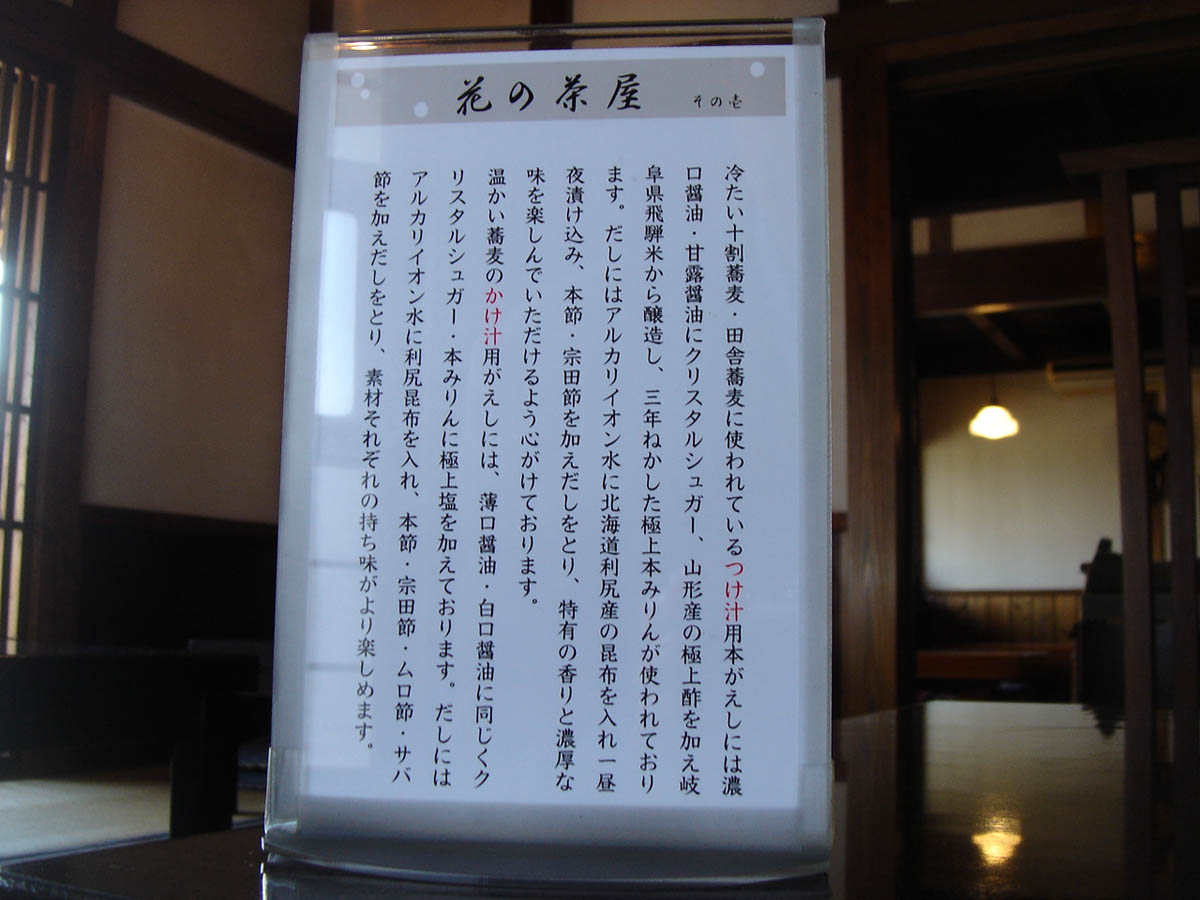 花の茶屋 その壱
冷たい十割蕎麦・田舎蕎麦に使われているつけ汁用本がえしには濃
口醤油・甘露醤油にクリスタルシュガー、山形産の極上酢を加え岐
阜県飛騨米から醸造し、三年ねかした極上本みりんが使われており
ます。だしにはアルカリイオン水に北海道利尻産の昆布を入れ一昼
夜漬け込み、本節・宗田節を加えだしをとり、特有の香りと濃厚な
味を楽しんでいただけるよう心がけております。
温かい蕎麦のかけ汁用がえしには、薄口醤油・白口醤油に同じくク
リスタルシュガー・本みりんに極上塩を加えております。だしには
アルカリイオン水に利尻昆布を入れ、本節・宗田節・ムロ節・サバ
節を加えだしをとり、素材それぞれの持ち味がより楽しめます。